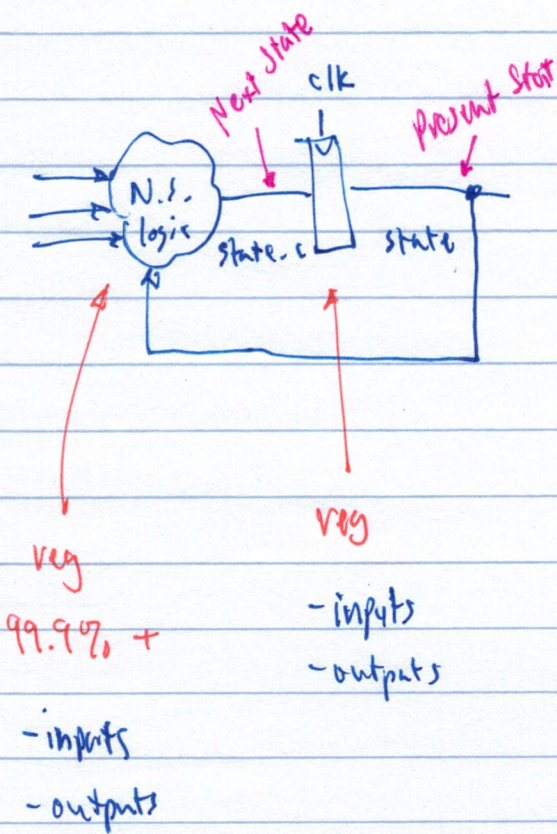 Next State
clk
Present Stat
N.S.
logic
state_c
state
reg
reg
99.9% +
-inputs
-outputs
-inputs
-outputs